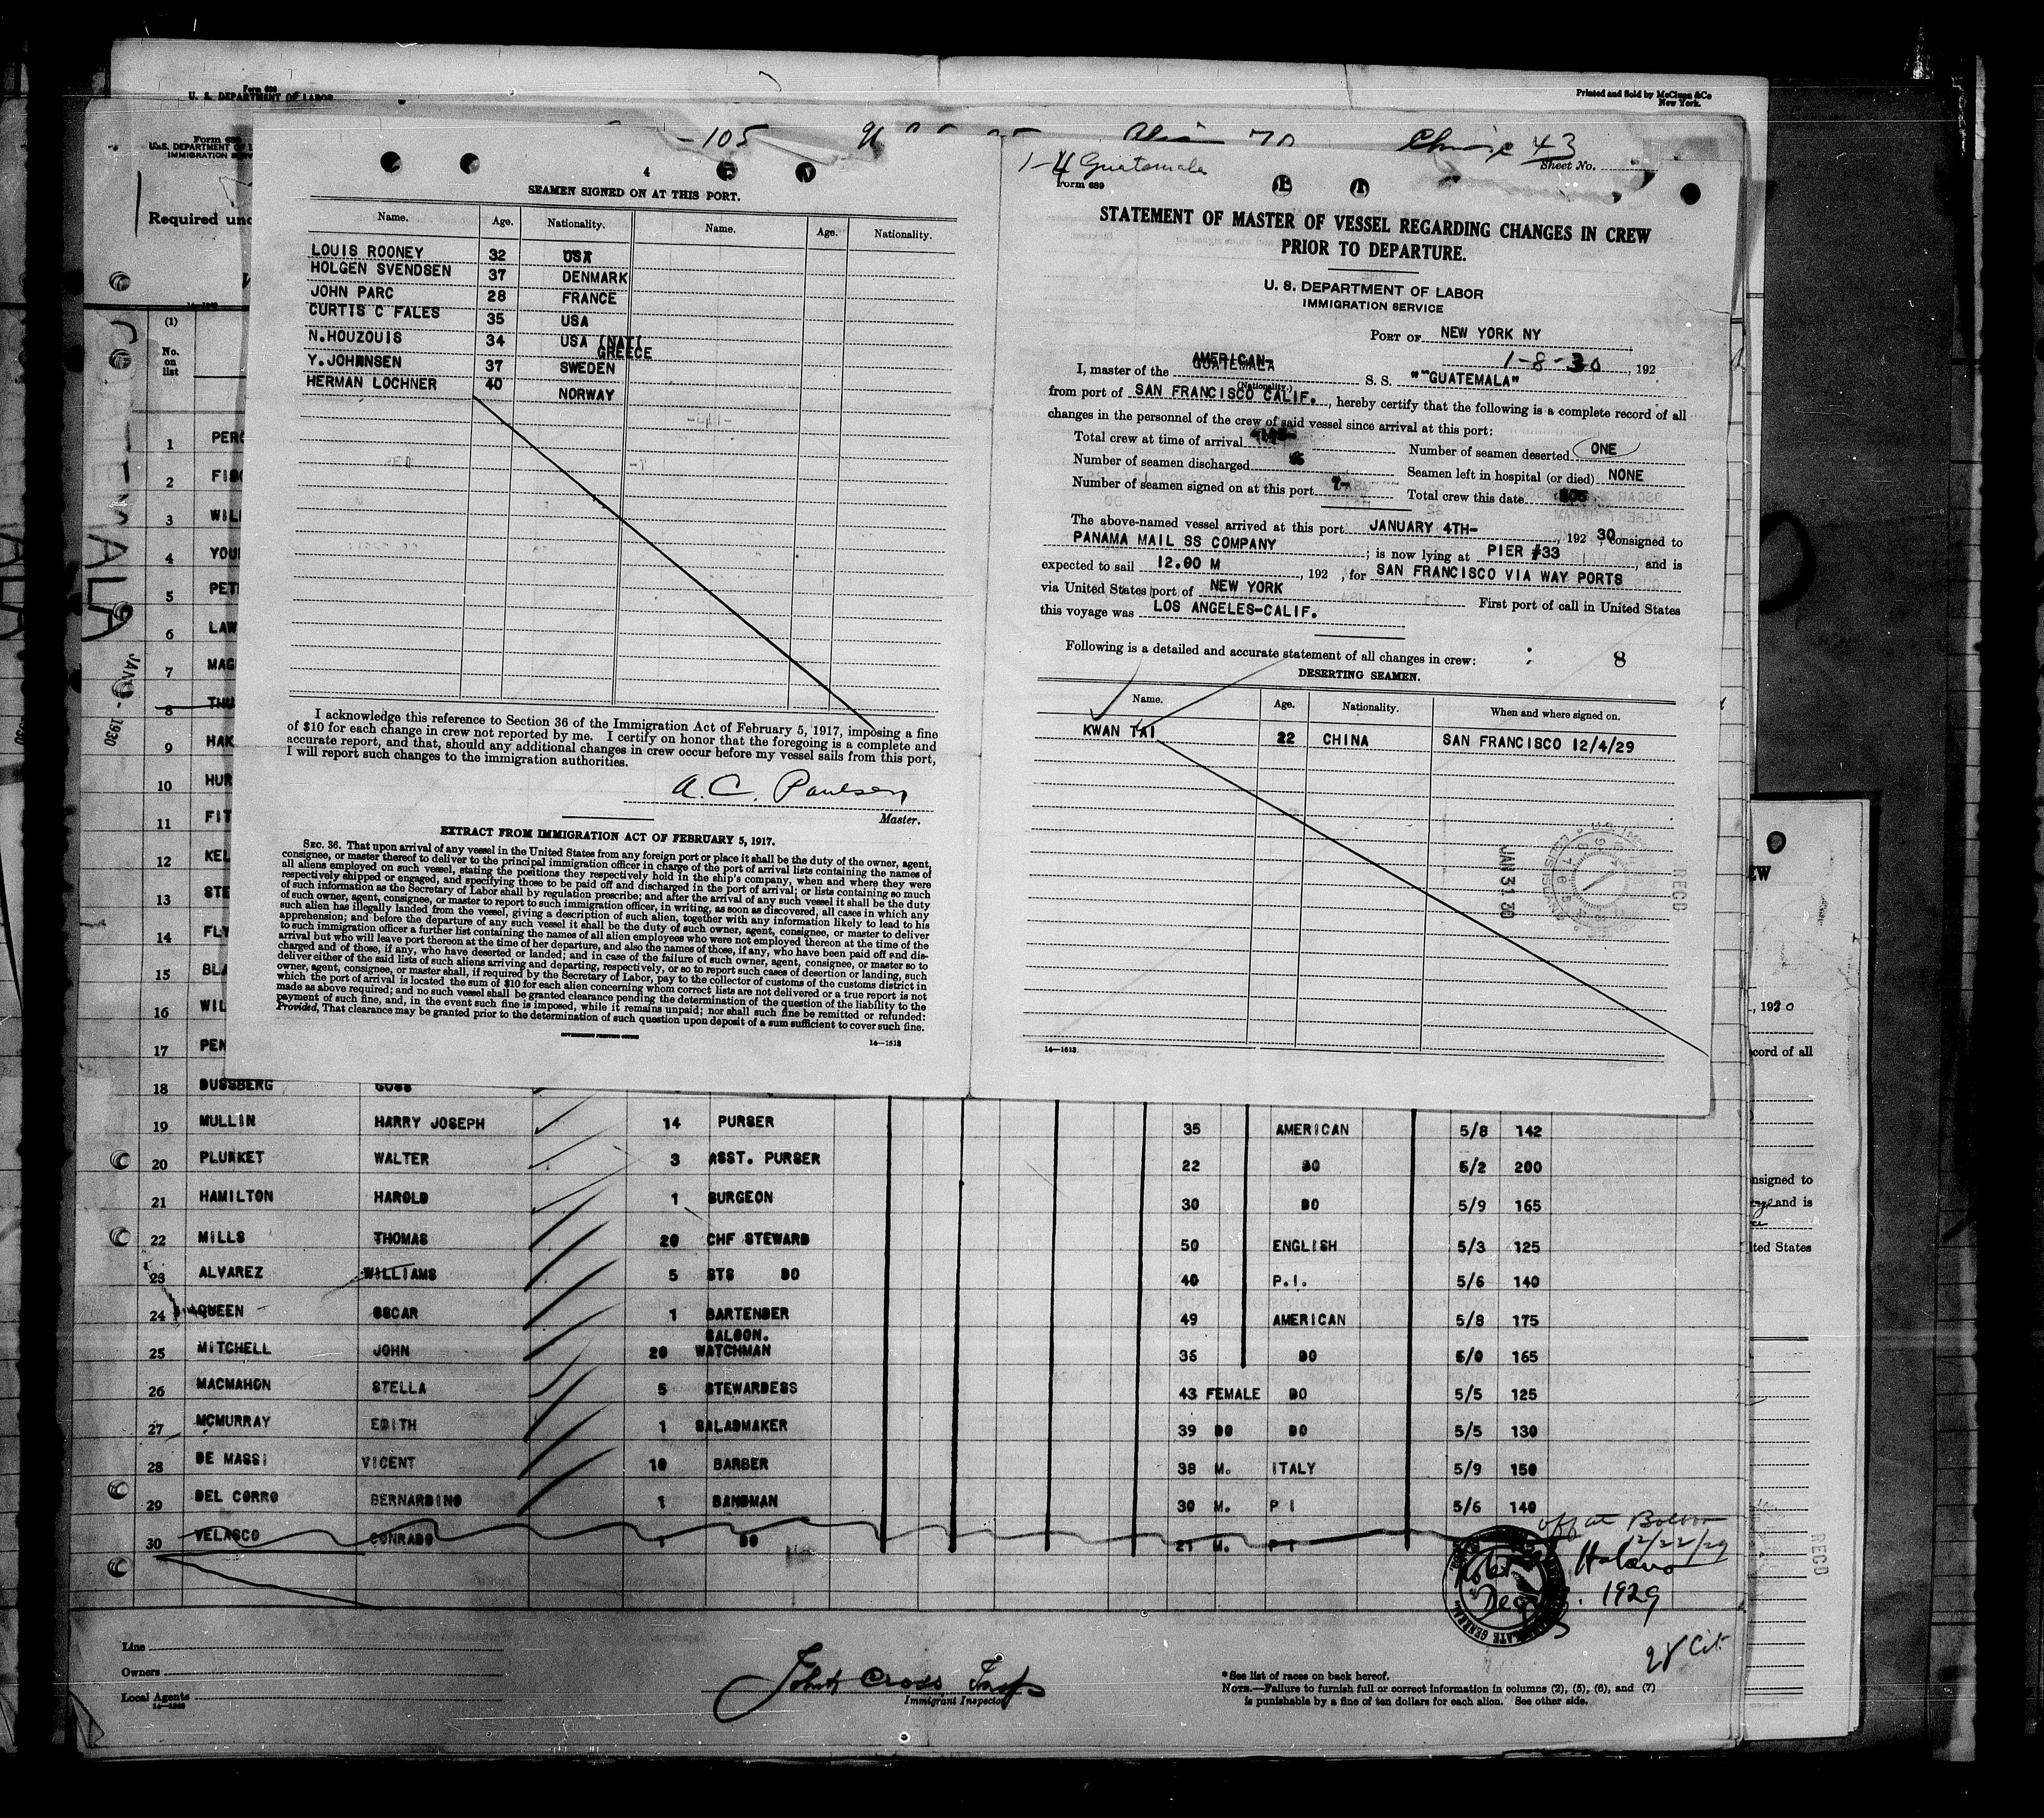 Form 689
U. S. DEPARTMENT OF LABOR
Printed and Sold by McClunn &Co
New York.
Form 689
U.S. DEPARTMENT OF L
IMMIGRATION SERV
Required und
-105
43
Sheet No.
4
SEAMEN SIGNED ON AT THIS PORT.
Name. Age. Nationality. Name. Age. Nationality.
LOUIS ROONEY 32 USA
HOLGEN SVENDSEN 37 DENMARK
JOHN PARC 28 FRANCE
CURTIS C FALES 35 USA
N.HOUZOUIS 34 USA (NAT(
GREECE
Y.JOHNNSEN 37 SWEDEN
HERMAN LOCHNER 40 NORWAY
I acknowledge this reference to Section 36 of the Immigration Act of February 5, 1917, imposing a fine
of $10 for each change in crew not reported by me. I certify on honor that the foregoing is a complete and
accurate report, and that, should any additional changes in crew occur before my vessel sails from this port,
I will report such changes to the immigration authorities.
A. C. Paulsen
Master.
EXTRACT FROM IMMIGRATION ACT OF FEBRUARY 5, 1917.
SEC. 36. That upon arrival of any vessel in the United States from any foreign port or place it shall be the duty of the owner, agent,
consignee, or master thereof to deliver to the principal immigration officer in charge of the port of arrival lists containing the names of
all aliens employed on such vessel, stating the positions they respectively hold in the ship's company, when and where they were
respectively shipped or engaged, and specifying those to be paid off and discharged in the port of arrival; or lists containing so much
of such information as the Secretary of Labor shall by regulation prescribe; and after the arrival of any such vessel it shall be the duty
of such owner, agent, consignee, or master to report to such immigration officer, in writing, as soon as discovered, all cases in which any
such alien has illegally landed from the vessel, giving a description of such alien, together with any information likely to lead to his
apprehension; and before the departure of any such vessel it shall be the duty of such owner, agent, consignee, or master to deliver
to such immigration officer a further list containing the names of all alien employees who were not employed thereon at the time of the
arrival but who will leave port thereon at the time of her departure, and also the names of those, if any, who have been paid off and dis-
charged and of those, if any, who have deserted or landed; and in case of the failure of such owner, agent, consignee, or master so to
deliver either of the said lists of such aliens arriving and departing, respectively, or so to report such cases of desertion or landing, such
owner, agent, consignee, or master shall, if required by the Secretary of Labor, pay to the collector of customs of the customs district in
which the port of arrival is located the sum of $10 for each alien concerning whom correct lists are not delivered or a true report is not
made as above required; and no such vessel shall be granted clearance pending the determination of the question of the liability to the
payment of such fine, and, in the event such fine is imposed, while it remains unpaid; nor shall such fine be remitted or refunded:
Provided, That clearance may be granted prior to the determination of such question upon deposit of a sum sufficient to cover such fine.
GOVERNMENT PRINTING OFFICE
14—1613
1-4 Guatemala
Form 689
STATEMENT OF MASTER OF VESSEL REGARDING CHANGES IN CREW
PRIOR TO DEPARTURE.
U. S. DEPARTMENT OF LABOR
IMMIGRATION SERVICE
PORT OF NEW YORK NY
1-8-30, 192
AMERICAN
I, master of the GUATEMALA S. S. ""GUATEMALA"
(Nationality.)
from port of SAN FRANCISCO CALIF., hereby certify that the following is a complete record of all
changes in the personnel of the crew of said vessel since arrival at this port:
Total crew at time of arrival Number of seamen deserted ONE
Number of seamen discharged Seamen left in hospital (or died) NONE
Number of seamen signed on at this port 7- Total crew this date 105
The above-named vessel arrived at this port JANUARY 4TH-, 192 30, consigned to
PANAMA MAIL SS COMPANY; is now lying at PIER #33, and is
expected to sail 12.00 M, 192 , for SAN FRANCISCO VIA WAY PORTS
via United States port of NEW YORK First port of call in United States
this voyage was LOS ANGELES-CALIF.
Following is a detailed and accurate statement of all changes in crew: 8
DESERTING SEAMEN.
Name. Age. Nationality. When and where signed on.
KWAN TAI 22 CHINA SAN FRANCISCO 12/4/29
JAN 31 30
RECD
14—1613
(1)
No.
on
list
1 PERC
2 FISC
3 WILL
4 YOU
5 PETE
6 LAW
7 MAG
8 THU
9 HAK
10 HUR
11 FIT
12 KEL
13 STE
14 FLY
15 BLA
16 WIL
17 PEN
18 DUSSBERG GUSS
19 MULLIN HARRY JOSEPH 14 PURSER 35 AMERICAN 5/8 142
20 PLUNKET WALTER 3 ASST. PURSER 22 DO 5/2 200
21 HAMILTON HAROLD 1 SURGEON 30 DO 5/9 165
22 MILLS THOMAS 20 CHF STEWARD 50 ENGLISH 5/3 125
23 ALVAREZ WILLIAMS 5 STS DO 40 P.I. 5/6 140
24 QUEEN OSCAR 1 BARTENDER 49 AMERICAN 5/8 175
SALOON.
25 MITCHELL JOHN 20 WATCHMAN 36 DO 6/0 165
26 MACMAHON STELLA 5 STEWARDESS 43 FEMALE DO 5/5 125
27 MCMURRAY EDITH 1 SALADMAKER 39 DO DO 5/5 130
28 DE MASSI VICENT 10 BARBER 38 M. ITALY 5/9 150
29 DEL CORRO BERNARDINO 1 BANDMAN 30 M. P I 5/6 140
30 VELASCO CONRADO 1 DO 21 M. P I
off at Balboa
12/22/29
1929
28 Cit
Line
Owners
Local Agents
14—1240
John Cross Insp
Immigrant Inspector
*See list of races on back hereof.
NOTE.—Failure to furnish full or correct information in columns (2), (5), (6), and (7)
is punishable by a fine of ten dollars for each alien. See other side.
EW
, 1930
ecord of all
nsigned to
and is
ited States
RECD
ALA
JAN - 1930